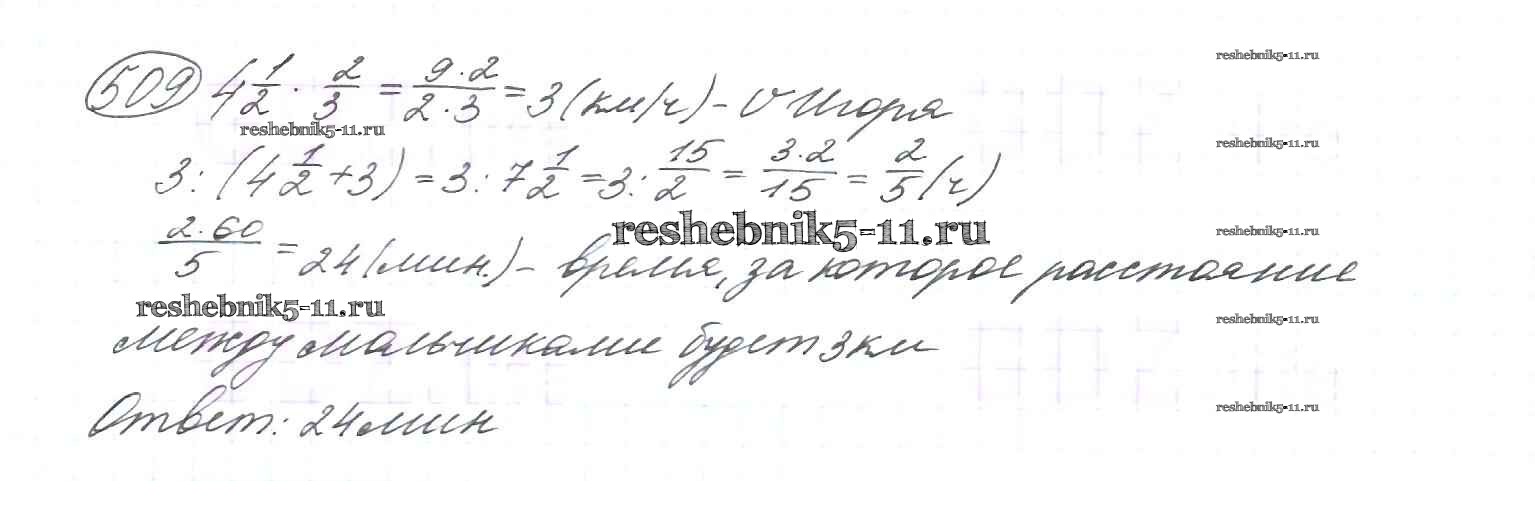 reshebnik5-11.ru
509 4 1/2 · 2/3 = 9·2/2·3 = 3 (км/ч) – v Игоря
reshebnik5-11.ru
reshebnik5-11.ru
3 : (4 1/2 + 3) = 3 : 7 1/2 = 3 : 15/2 = 3·2/15 = 2/5 (ч)
reshebnik5-11.ru
reshebnik5-11.ru
2·60/5 = 24 (мин.) – время, за которое расстояние
reshebnik5-11.ru
reshebnik5-11.ru
между мальчиками будет 3 км
reshebnik5-11.ru
Ответ: 24 мин